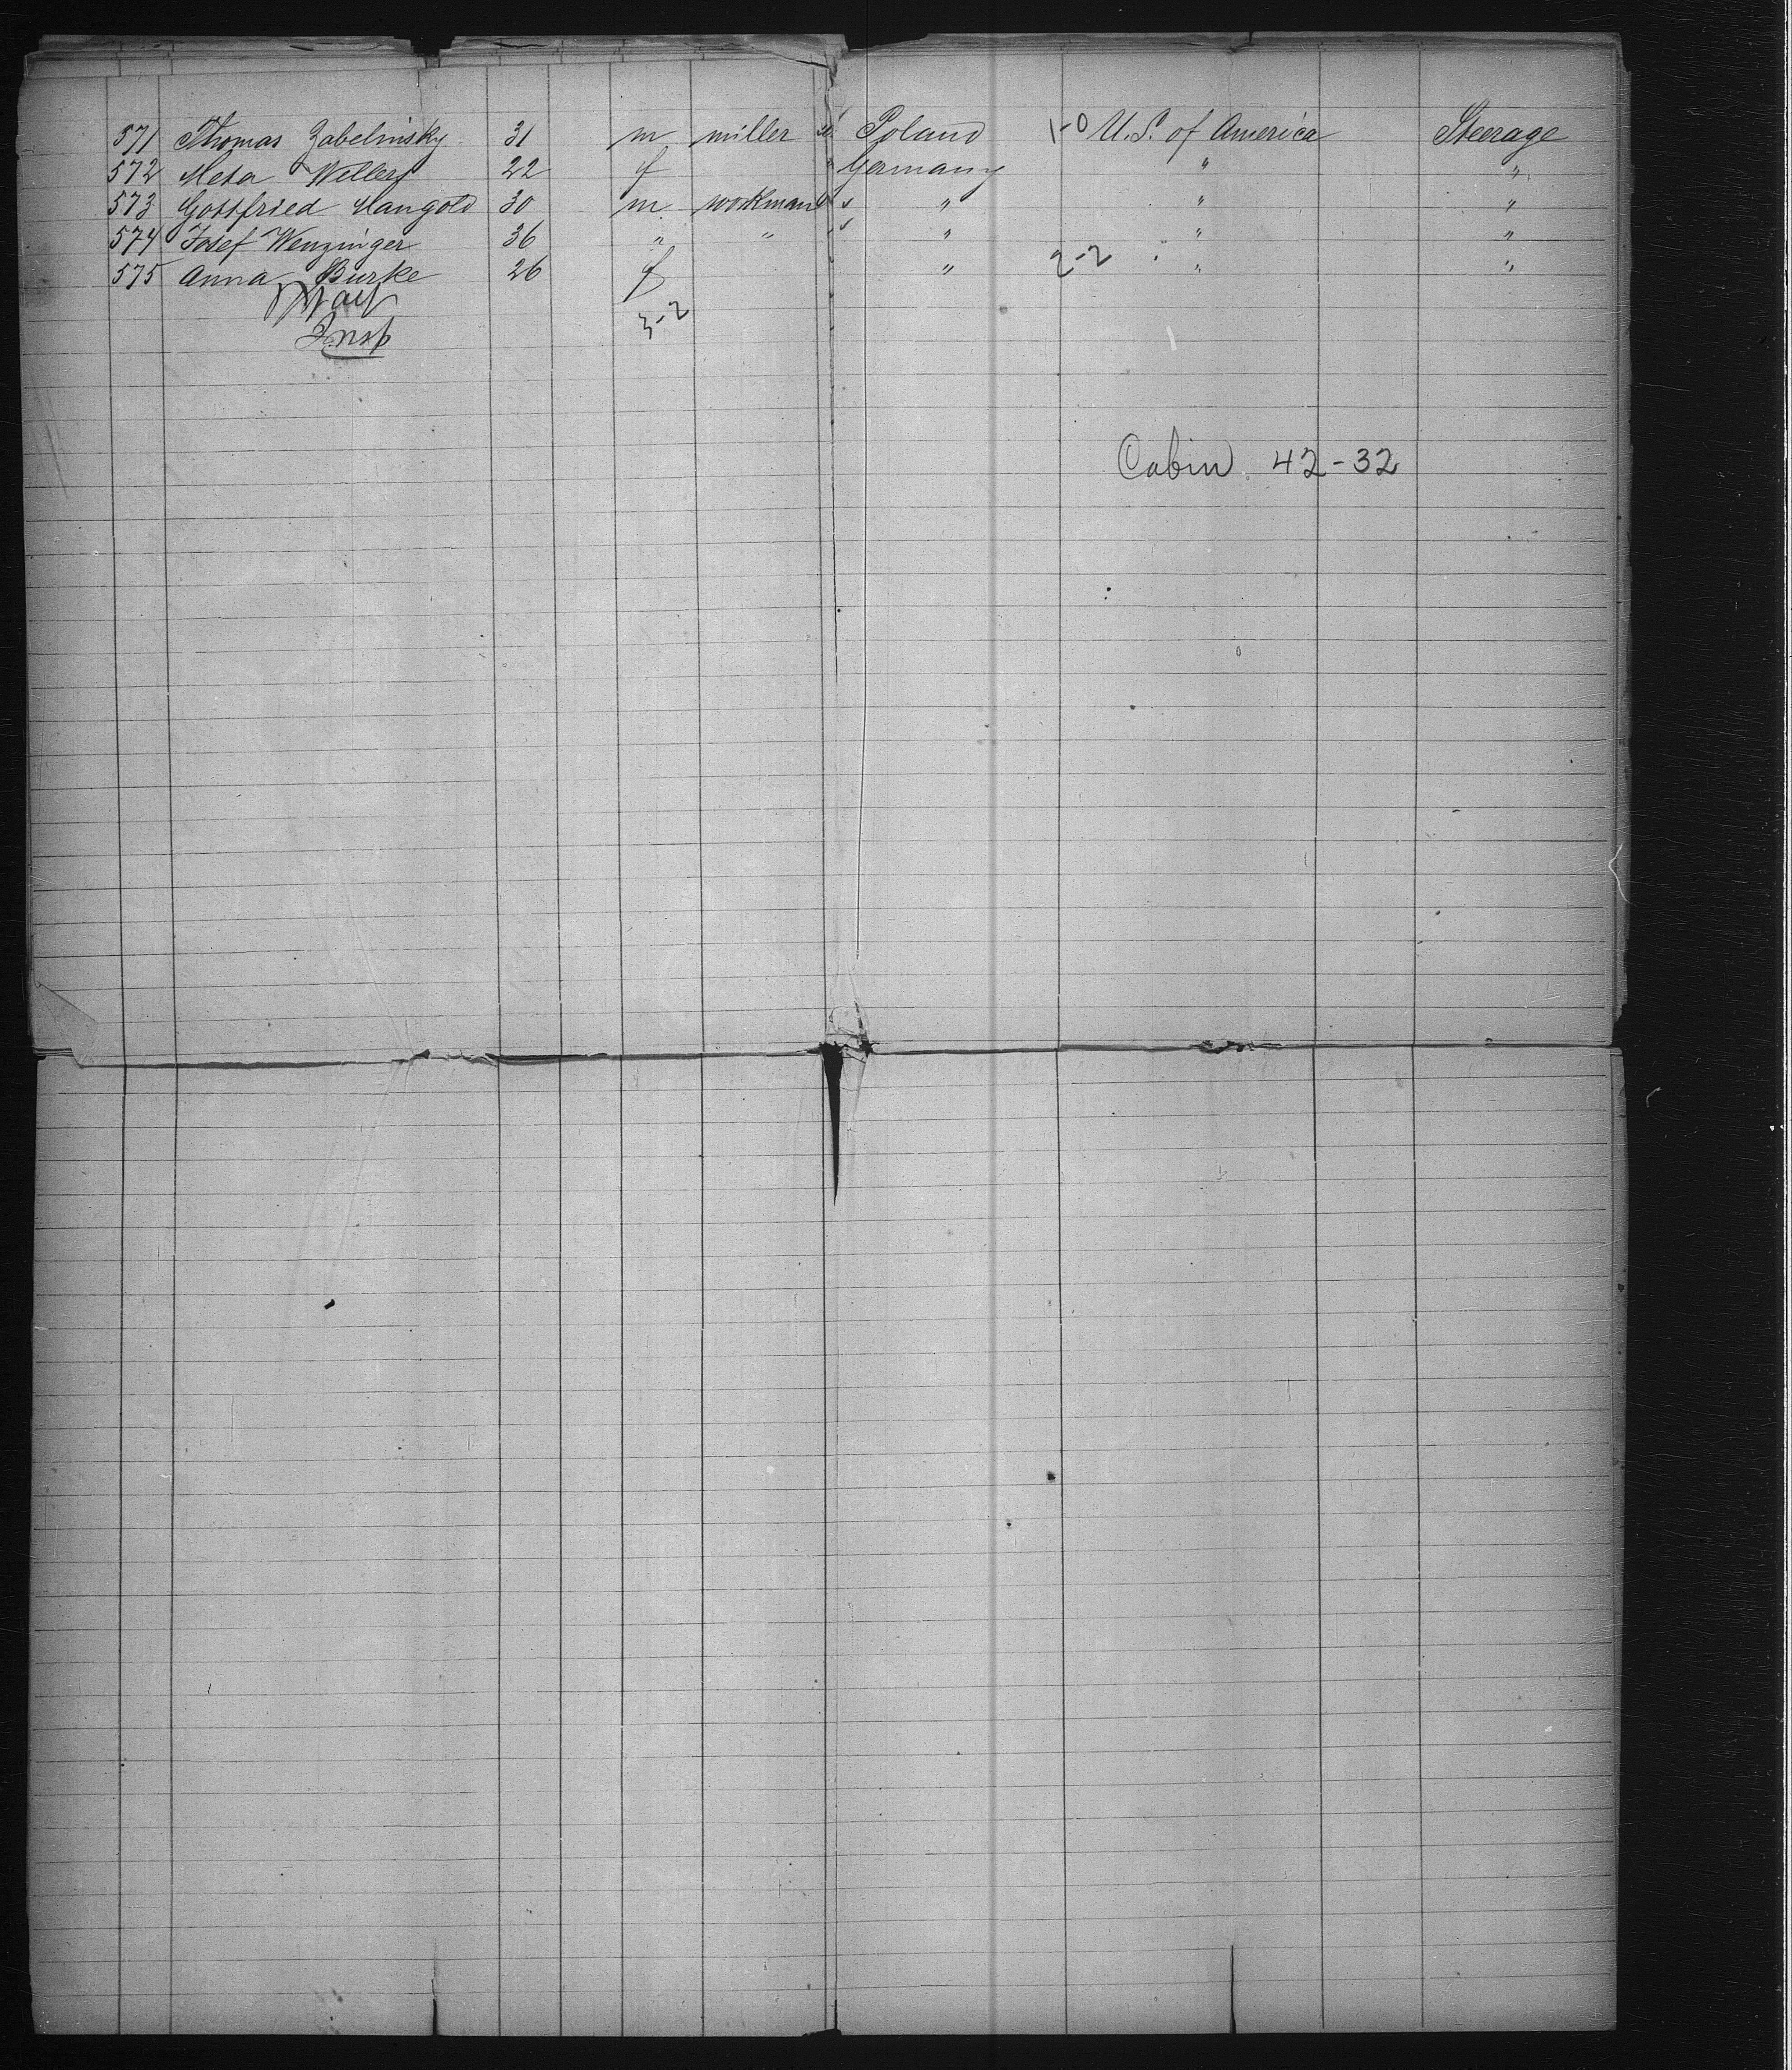 571 Thomas Zabelinsky 31 m miller Poland 1-0 U.S. of America Steerage
572 Meta Willers 22 f " Germany " "
573 Gottfried Mangold 30 m workman " " " "
574 Josef Wenzinger 36 " " " " " "
575 Anna Burke 26 f " 2-2 " "
Insp 3-2
Cabin 42-32